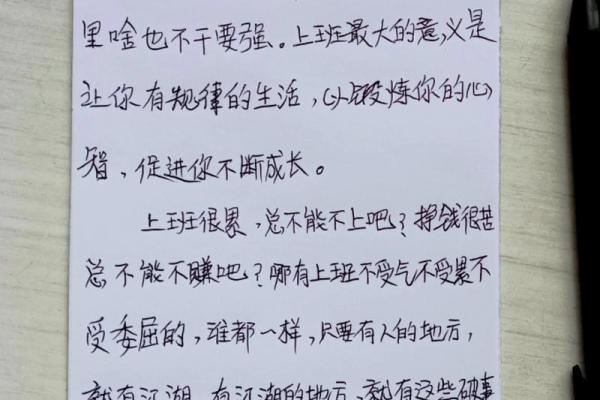 里啥也不干要强。上班最大的意义是
让你有规律的生活，以锻炼你的心
智，促进你不断成长。
上班很累，总不能不上吧？挣钱很苦
总不能不赚吧？哪有上班不受气不受累不
受委屈的，谁都一样，只要有人的地方，
就有江湖，有江湖的地方，就有这些破事